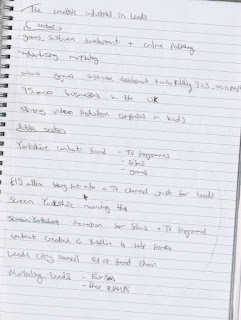 The creative industries in Leeds
6 sectors
games, software development + online Publishing
advertising marketing
games software development
75,000 businesses in the UK
Strong video Production companies in Leeds
Yorkshire content fund - TV Programmes
- films
- games
£15 million being put into a TV channel just for Leeds
Screen Yorkshire running the
Screen Yorkshire for films + TV Programmes
content created in Yorkshire to help
Leeds City council food chain
Marketing Leeds - Tourism